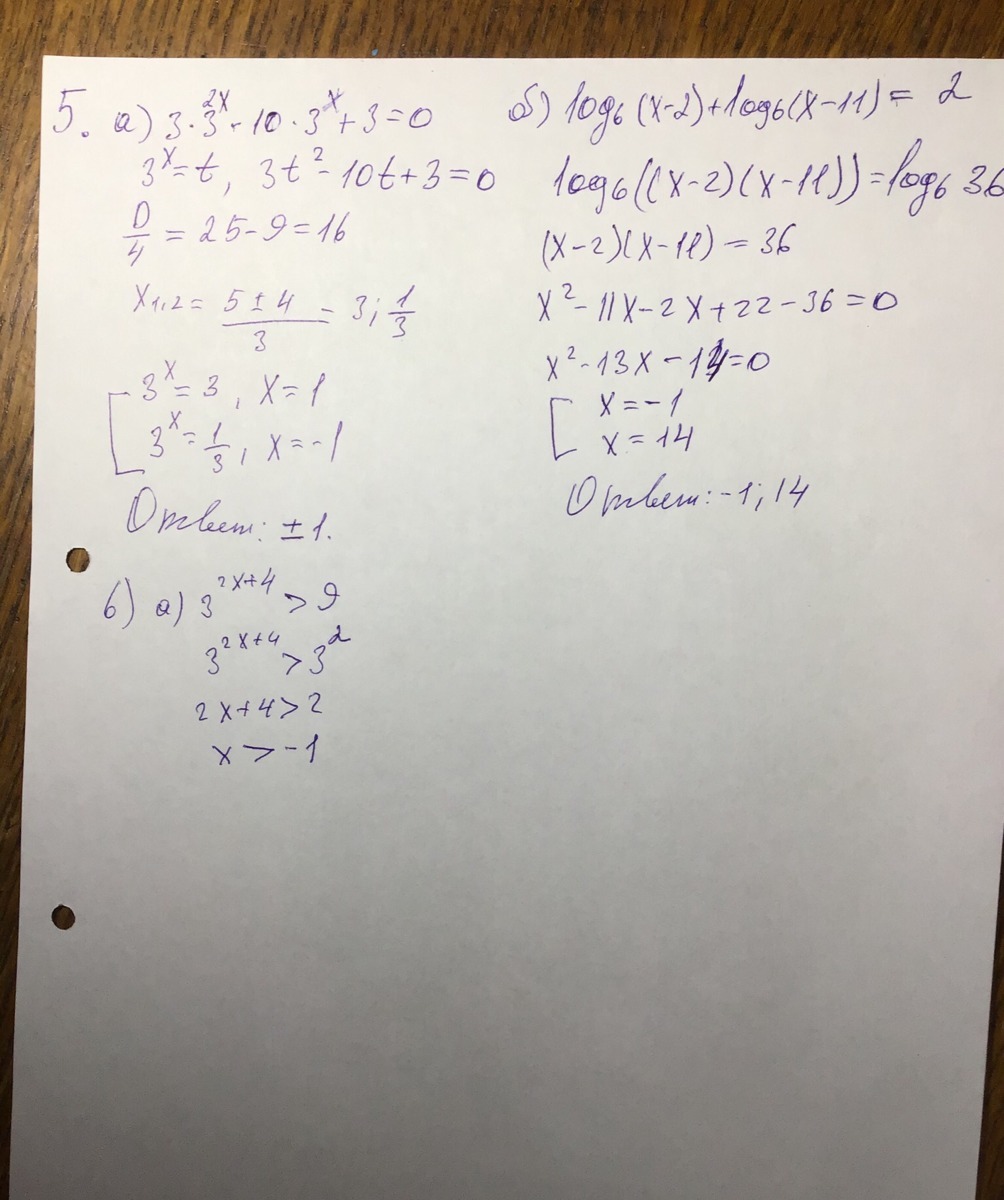 5. а) 3·3^{2x} - 10·3^x + 3 = 0
3^x = t, 3t^2 - 10t + 3 = 0
D/4 = 25 - 9 = 16
x_{1,2} = (5 ± 4)/3 = 3; 1/3
[ 3^x = 3, x = 1
3^x = 1/3, x = -1
Ответ: ±1.
б) log_6 (x-2) + log_6 (x-11) = 2
log_6 ((x-2)(x-11)) = log_6 36
(x-2)(x-11) = 36
x^2 - 11x - 2x + 22 - 36 = 0
x^2 - 13x - 14 = 0
[ x = -1
x = 14
Ответ: -1; 14
6) а) 3^{2x+4} > 9
3^{2x+4} > 3^2
2x + 4 > 2
x > -1